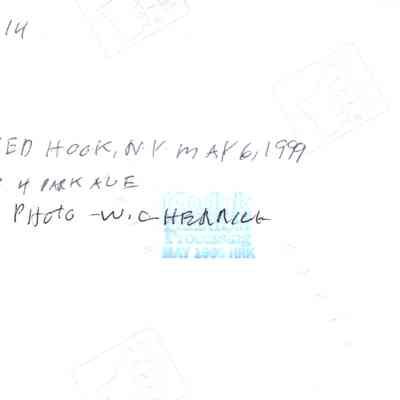 14
ED HOOK, N.Y MAY 6, 1999
4 PARK AVE
PHOTO - W. C HERRICK
Kodak
Processing
MAY 1999 HRK